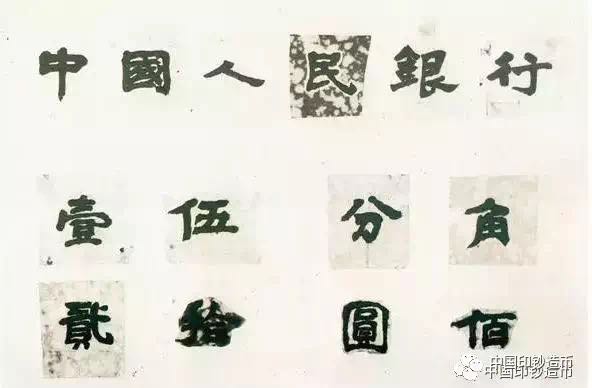 中國人民銀行
壹伍分角
貳拾圓佰
中国印钞造币